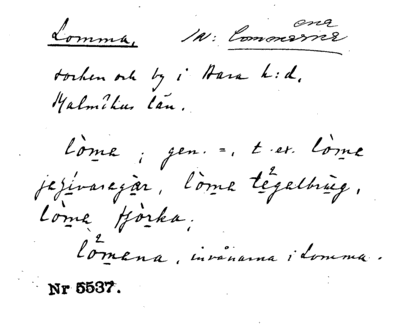 Lomma, IN: Lommarna
ena
socken och by i Bara h:d,
Malmöhus län.
lòme ; gen. =, t. ex. lòme
lòme tègelbrug,
lòme
lòmana, invånarna i Lomma.
Nr 5537.